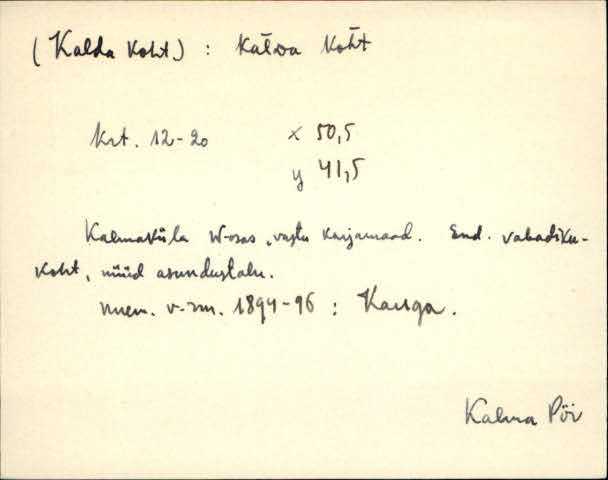 (Kalda koht) : kălda kŏ̀t
krt. 12-20 x 50,5
y 41,5
Kalmaküla W-osas, vastu karjamaad. End. vabadiku-
koht, nüüd asundustalu.
v-rm. 1894-96 : Kanga.
Kalma Pöi